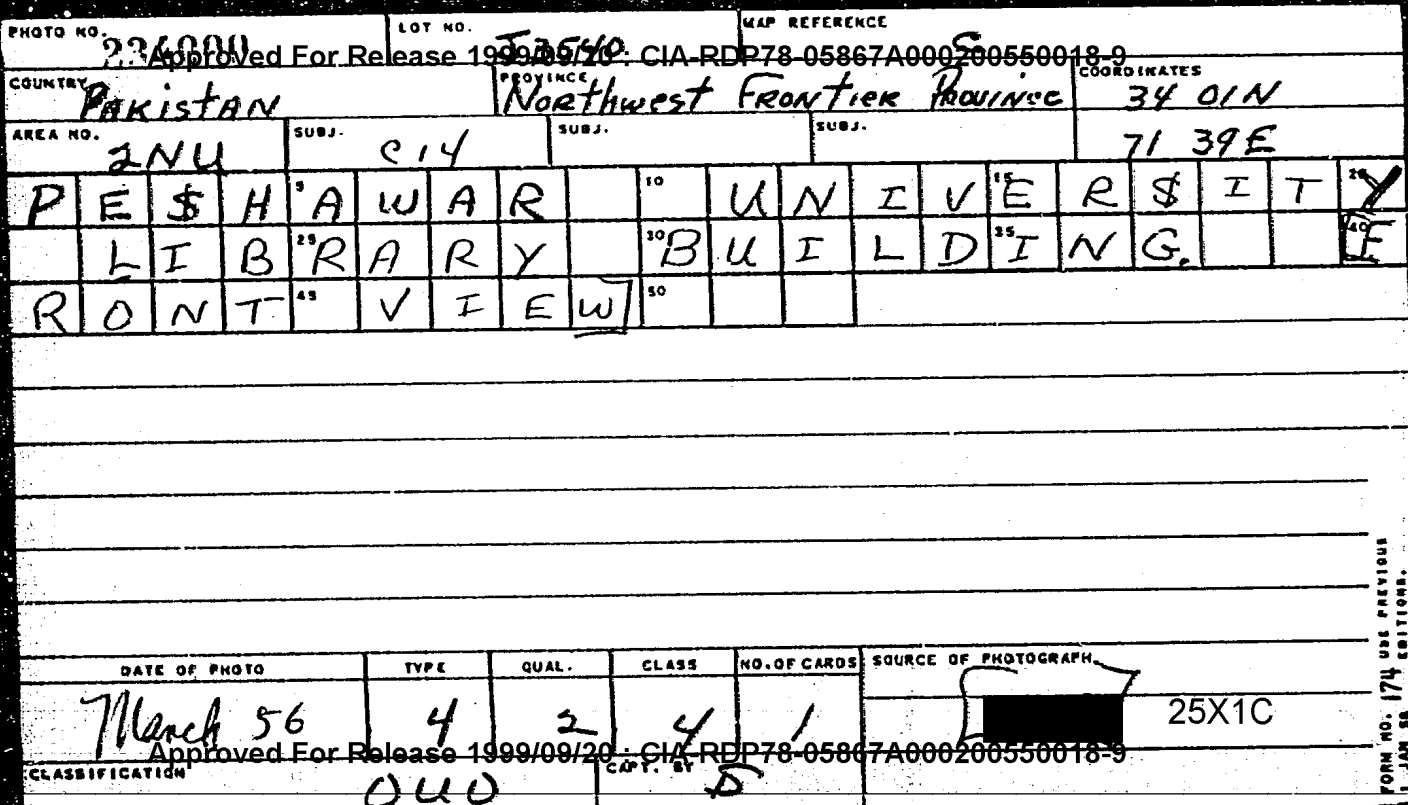 PHOTO NO. LOT NO. J3540 MAP REFERENCE S
Approved For Release 1999/09/20 : CIA-RDP78-05867A000200550018-9
COUNTRY PAKistAN PROVINCE NORthwest FRONTIER PROVINCE COORDINATES 34 01N
AREA NO. 2NU SUBJ. C14 SUBJ. SUBJ. 71 39E
PE$H 5 AWAR 10 UNIV 15 ER$IT 20 Y
LIB 25 RARY 30 BUILD 35 ING. 40 F
RONT 45 VIEW 50
DATE OF PHOTO TYPE QUAL. CLASS NO. OF CARDS SOURCE OF PHOTOGRAPH
March 56 4 2 4 1 25X1C
Approved For Release 1999/09/20 : CIA-RDP78-05867A000200550018-9
CLASSIFICATION OUO CAPT. BY D
FORM NO. 174 USE PREVIOUS
1 JAN 58 EDITIONS.